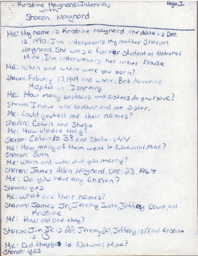 Kristine Maynard: Interview Page 1
with
Sharon Maynard
Me: My name is Kristine Maynard. The date is Dec.
12, 1990. I'm interviewing my mother Sharon
Maynard. She was a former student at National
Mine. I'm interviewing her in her House
Me: When and where were you born?
Sharon: February 17, 1949 and where Bell Memorial
Hospital in Ishpeming
Me: How many brothers and sisters do you have?
Sharon: I have one brother and one sister.
Me: Could you tell me their names?
Sharon: Calvin and Sheila
Me: How old are they?
Sharon: Calvin is 38 and Sheila is 44
Me: How many of them went to National Mine?
Sharon: Both
Me: When and who did you marry?
Sharon: James Allen Maynard, Dec. 23, 1967
Me: Do you have any Children?
Sharon: yes
Me: What are their names?
Sharon: James Jr., Jeremy Scott, Jeffrey David, and
Kristine
Me: How old are they?
Sharon: Jim Jr. is 22, Jeremy 20, Jeffrey and Kristine
Me: Did they go to National Mine?
Sharon: yes